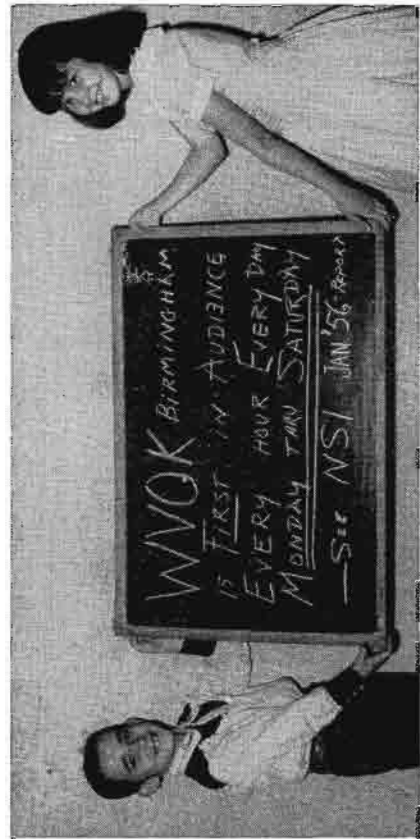 WVOK BIRMINGHAM
IS FIRST IN AUDIENCE
EVERY HOUR EVERY DAY
MONDAY THRU SATURDAY
—SEE NSI JAN '56 REPORT